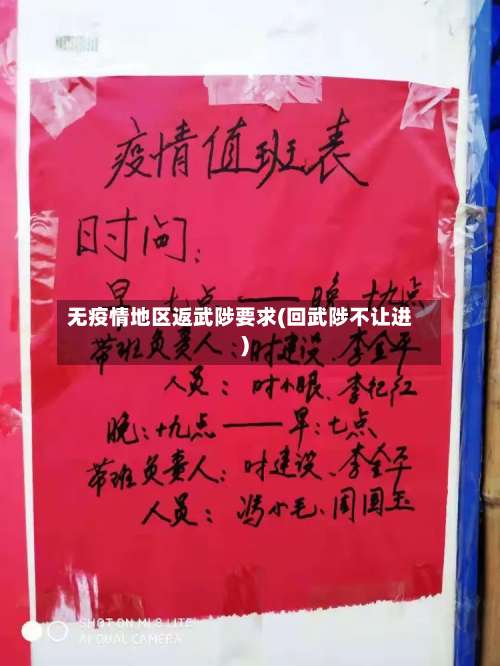 疫情值班表
时间：
早：七点——晚：十九点
无疫情地区返武陟要求(回武陟不让进
)
带班负责人：时建设、李全平
人员：时小眼、李纪红
晚：十九点——早：七点
带班负责人：时建设、李全平
人员：冯小毛、周国玉
SHOT ON MI 8 LITE
AI DUAL CAMERA